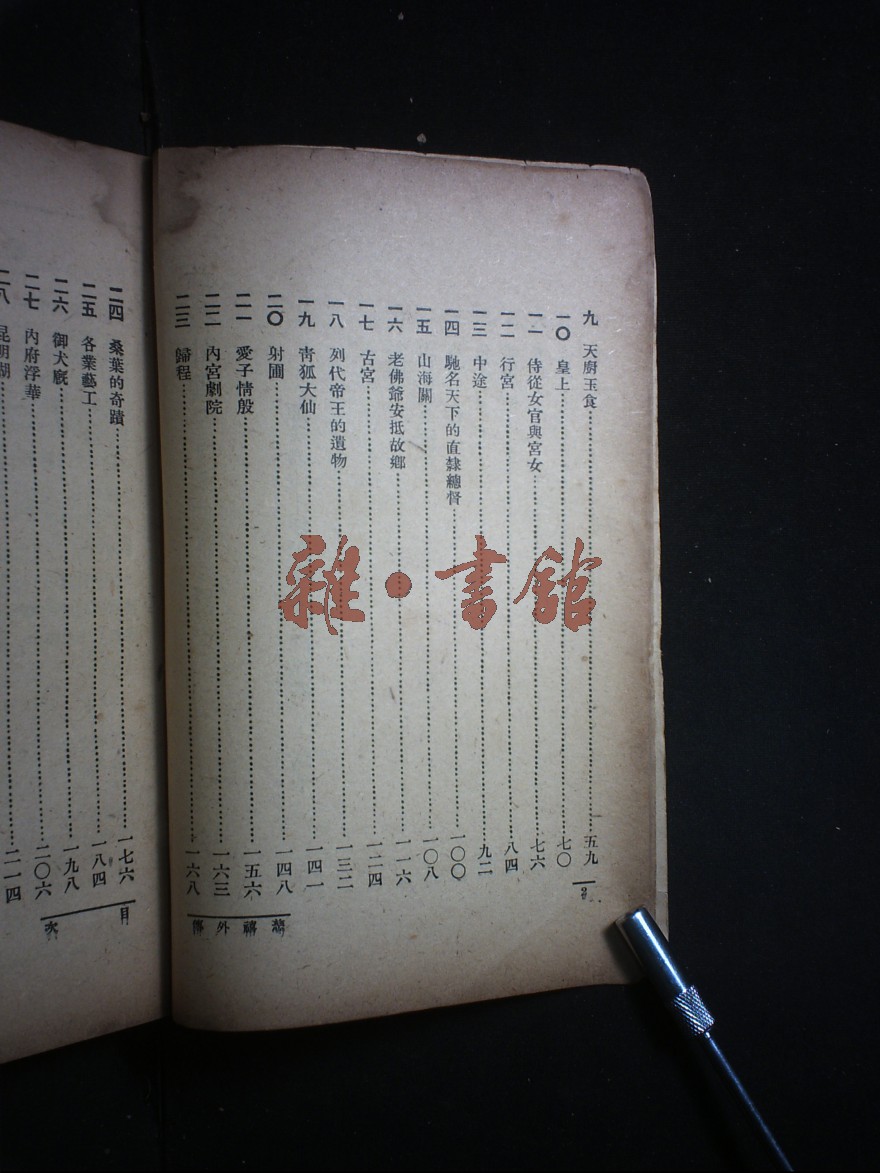 九 天廚玉食 五九
一〇 皇上 七〇
一一 侍從女官與宮女 七六
一二 行宮 八四
一三 中途 九二
一四 馳名天下的直隸總督 一〇〇
一五 山海關 一〇八
一六 老佛爺安抵故鄉 一一六
一七 古宮 一二四
一八 列代帝王的遺物 一三二
一九 青狐大仙 一四一
二〇 射圃 一四八
二一 愛子情殷 一五六
二二 內宮劇院 一六三
二三 歸程 一六八
2
禧外傳
二四 桑葉的奇蹟 一七六
二五 各業藝工 一八四
二六 御犬廐 一九八
二七 內府浮華 二〇六
二八 昆明湖 二一四
目次
雜·書館